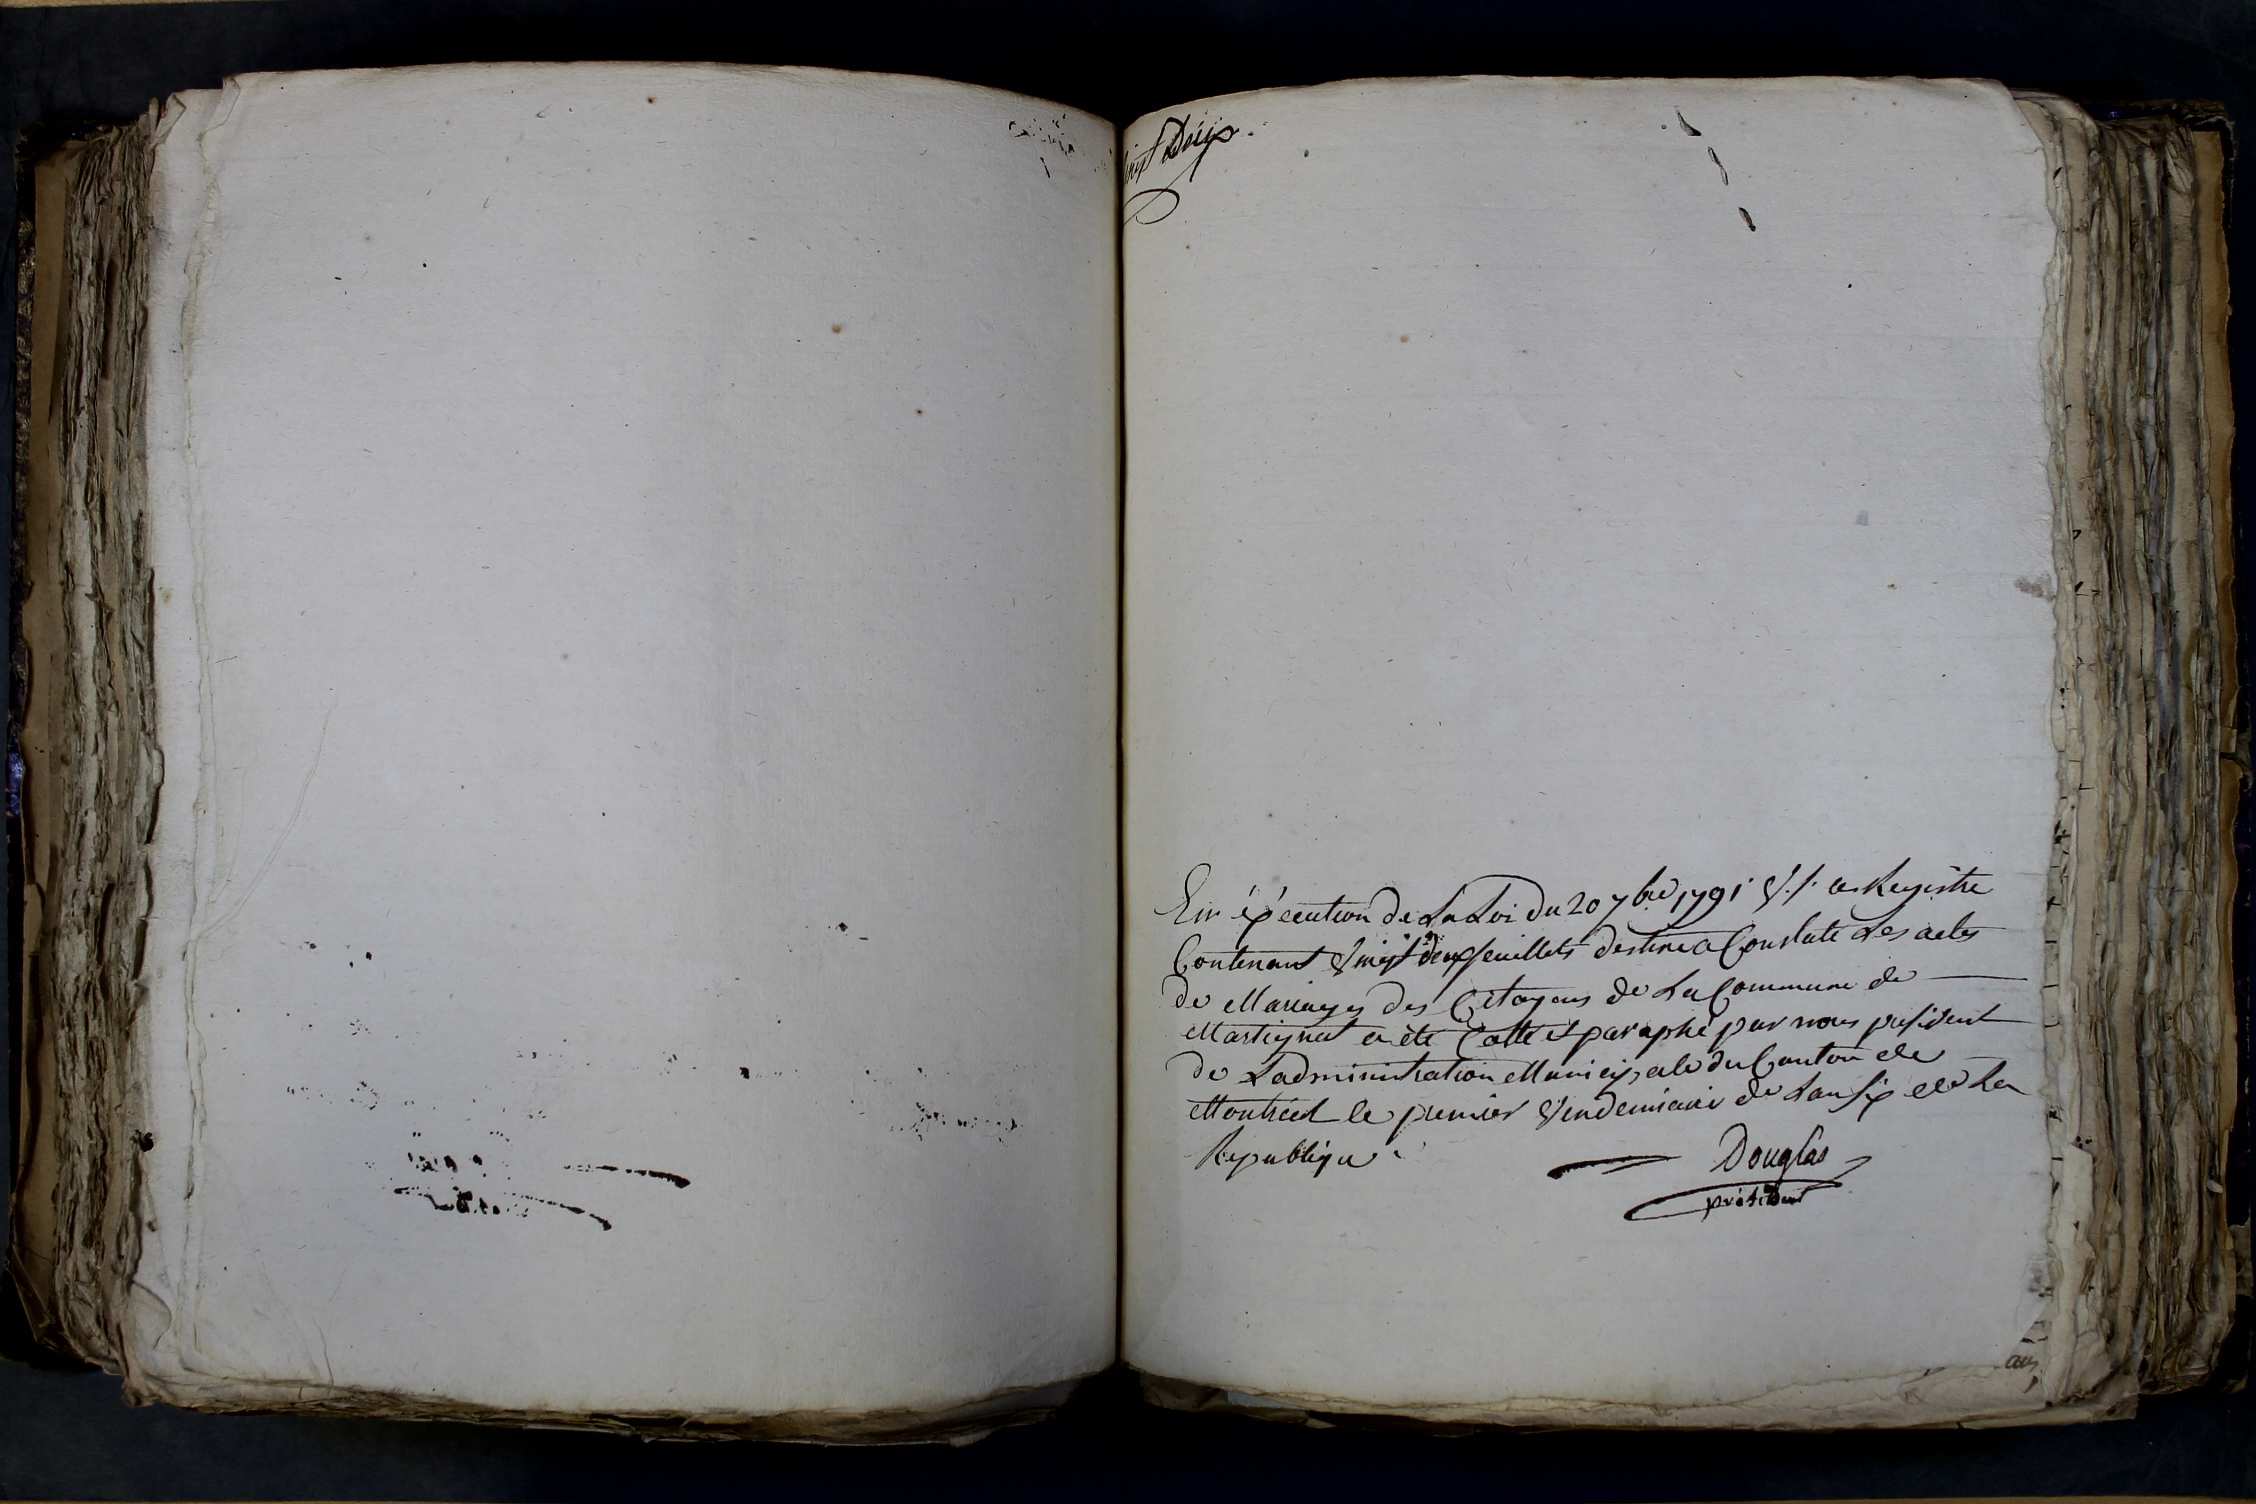 Vingt Deux
En éxécution de La Loi du 20 7bre 1791 V.S. ce Registre
Contenant Vingt deux feuillets destiné a Constaté Les actes
de Mariages des Citoyens de La Commune de
Martignat a été Cotté et paraphé par nous président
de Ladministration Municipale du Canton de
Montréal le premier Vendemiaire de Lan Six de La
Republique
Douglas
président